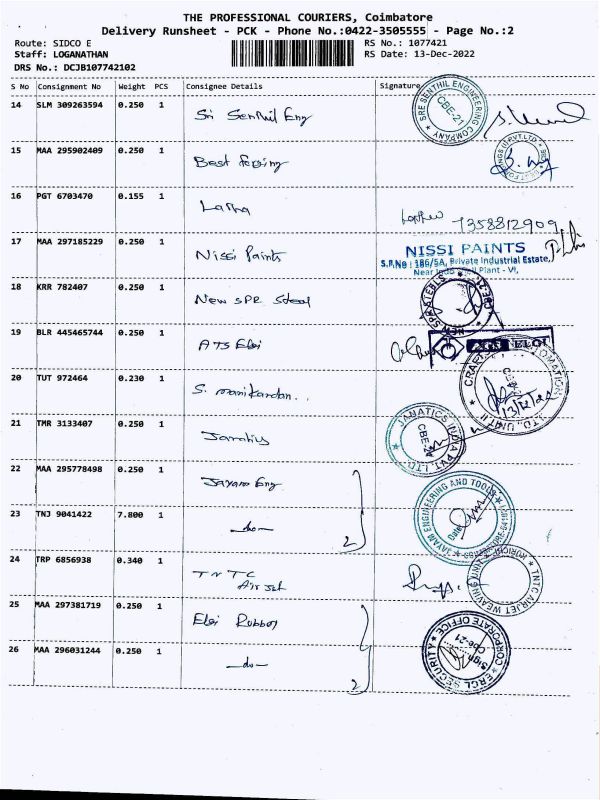 THE PROFESSIONAL COURIERS, Coimbatore
Delivery Runsheet - PCK - Phone No.:0422-3505555 - Page No.:2
Route: SIDCO E
RS No.: 1077421
Staff: LOGANATHAN
RS Date: 13-Dec-2022
DRS No.: DCJB107742102
S No Consignment No Weight PCS Consignee Details Signature
14 SLM 309263594 0.250 1 Sri Senthil Eng
SRE SENTHIL ENGINEERING COMPANY CBE-21
15 MAA 295902409 0.250 1 Best forging
16 PGT 6703470 0.155 1 Latha
7358812909
17 MAA 297185229 0.250 1 Nissi Paints
NISSI PAINTS
S.F.No : 186/5A, Private Industrial Estate,
18 KRR 782407 0.250 1 New SPR Steel
19 BLR 445465744 0.250 1 ATS Elgi
ATS ELGI
20 TUT 972464 0.230 1 S. manikandan.
13/12/22
21 TMR 3133407 0.250 1 Janatics
JANATICS INDIA PVT. LTD. CBE-21
22 MAA 295778498 0.250 1 Jayam Eng
JAYAM ENGINEERING AND TOOLS
Date
23 TNJ 9041422 7.800 1 -do-
2
24 TRP 6856938 0.340 1 TNTC
Air Jet
TNTC AIRJET WEAVING UNIT KURICHI
25 MAA 297381719 0.250 1 Elgi Rubber
26 MAA 296031244 0.250 1 -do-
2
ERCL SECURITY CORPORATE OFFICE
Sign
Cbe-21